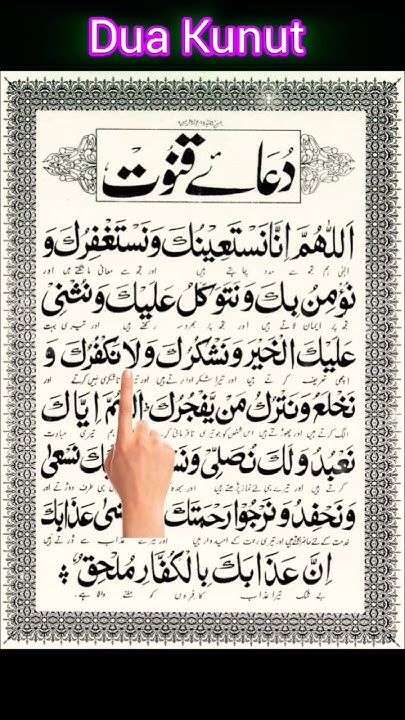 Dua Kunut
دُعَائے قنوت
اَللّٰهُمَّ اِنَّا نَسْتَعِيْنُكَ وَنَسْتَغْفِرُكَ وَ
الٰہی ہم تجھ سے مدد چاہتے ہیں اور تجھ سے معافی مانگتے ہیں اور
نُؤْمِنُ بِكَ وَنَتَوَكَّلُ عَلَيْكَ وَنُثْنِىْ
تجھ پر ایمان لاتے ہیں اور تجھ پر بھروسہ رکھتے ہیں اور تیری بہت
عَلَيْكَ الْخَيْرَ وَنَشْكُرُكَ وَلَا نَكْفُرُكَ وَ
اچھی تعریف کرتے ہیں اور تیرا شکر ادا کرتے ہیں اور تیری ناشکری نہیں کرتے اور
نَخْلَعُ وَنَتْرُكُ مَنْ يَّفْجُرُكَ اِيَّاكَ
الگ کرتے ہیں اور چھوڑتے ہیں اس شخص کو جو تیری نافرمانی تیری عبادت
نَعْبُدُ وَلَكَ نُصَلِّىْ نَسْعٰى
کرتے ہیں اور تیرے ہی لئے نماز پڑھتے ہیں اور ہی طرف دوڑتے اور
وَنَحْفِدُ وَنَرْجُوْا رَحْمَتَكَ عَذَابَكَ
خدمت کے لئے حاضر ہوتے ہیں اور تیری رحمت کے امیدوار ہیں اور عذاب سے ڈرتے ہیں
اِنَّ عَذَابَكَ بِالْكُفَّارِ مُلْحِقٌ
بے شک تیرا عذاب کافروں کو ملنے والا ہے۔